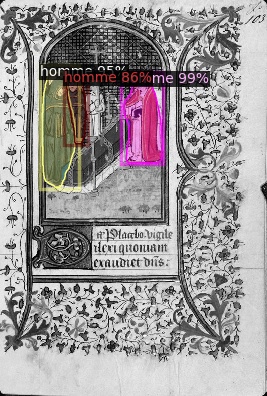 103
homme 95%
homme 86%
me 99%
Placebo. vigile
ilexi quoniam
exaudiet dñs: